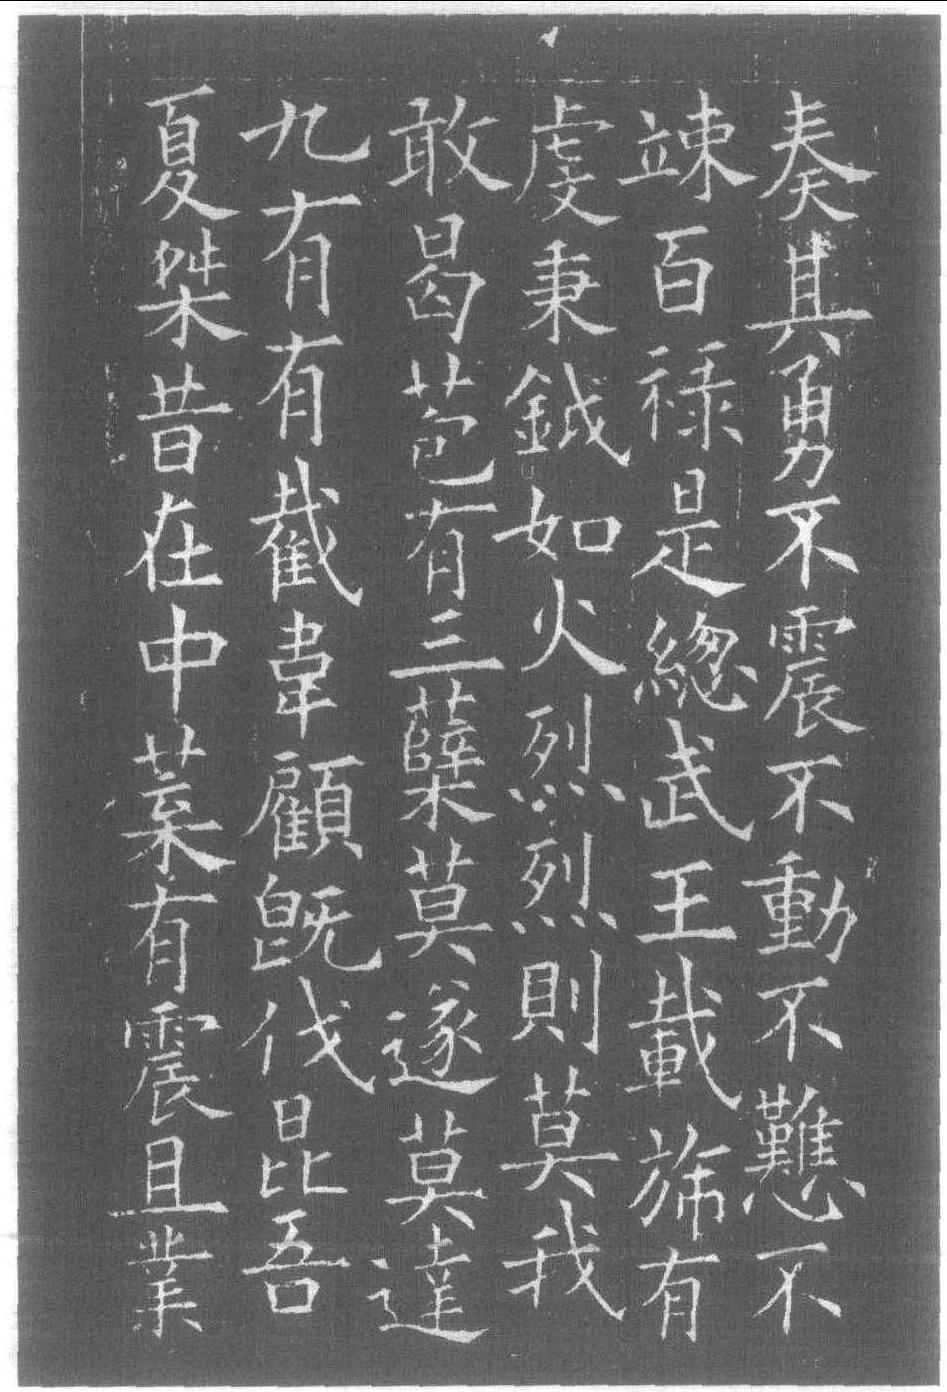 奏其勇不震不動不戁不
竦百祿是總武王載旆有
虔秉鉞如火烈烈則莫我
敢曷苞有三蘖莫遂莫達
九有有截韋顧既伐昆吾
夏桀昔在中葉有震且業